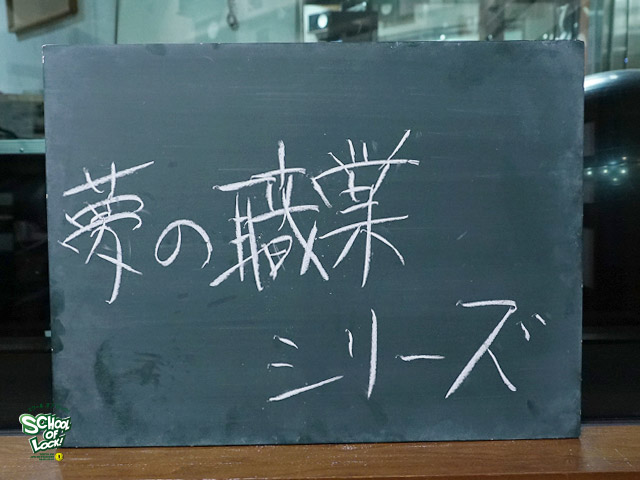 夢の職業
シリーズ
SCHOOL
OF
LOCK!